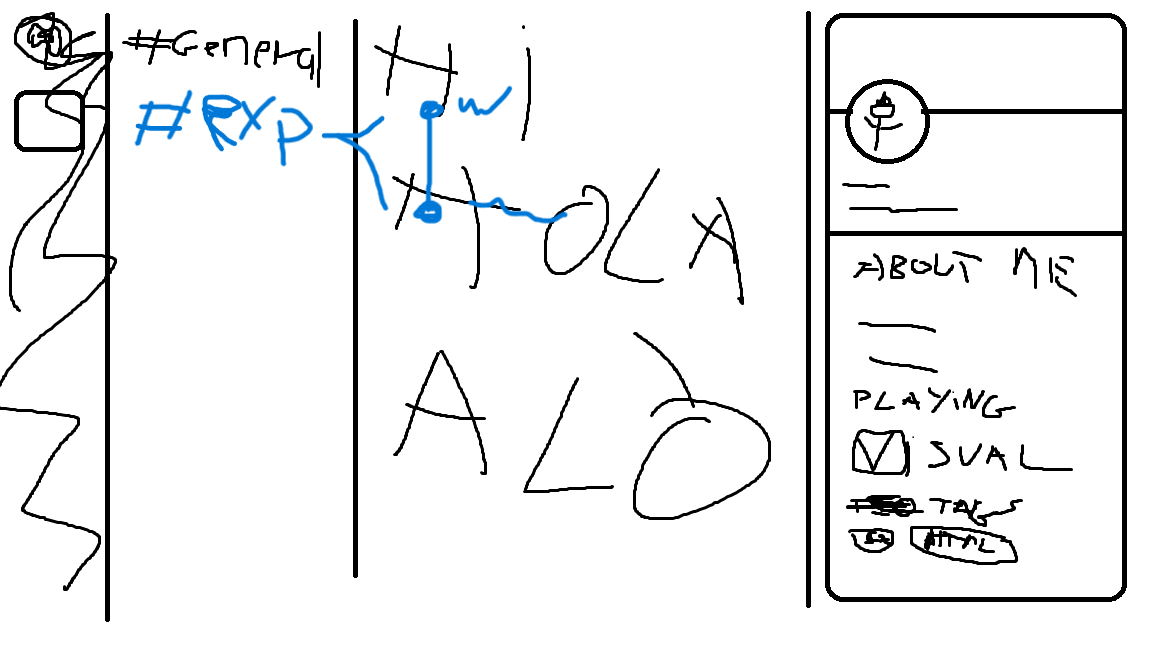 #General
#RXP
Hi
HOLA
ALÒ
ABOUT ME
PLAYING
V SVAL
TAGS
HTML